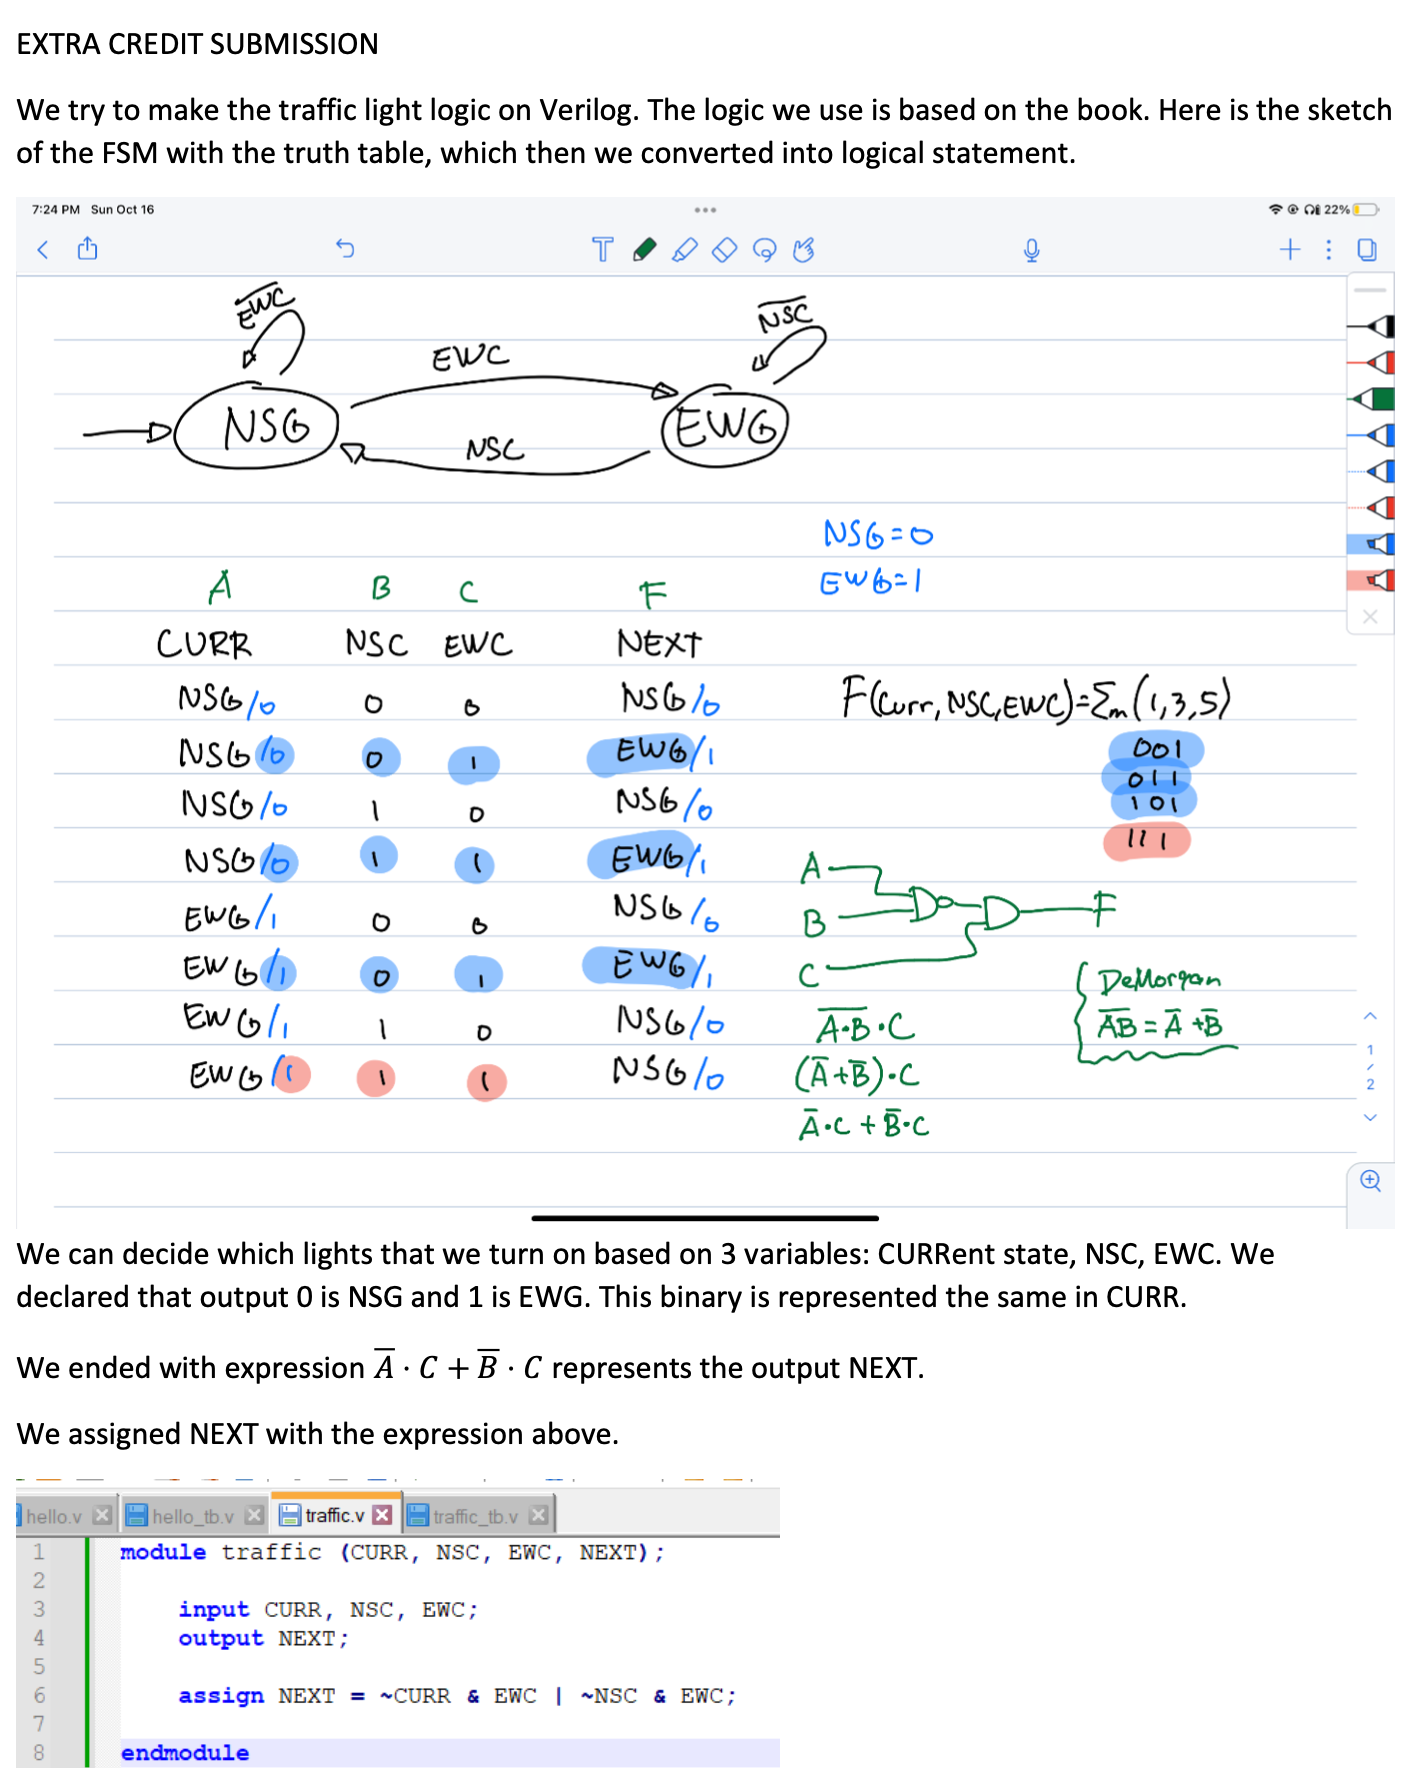 EXTRA CREDIT SUBMISSION
We try to make the traffic light logic on Verilog. The logic we use is based on the book. Here is the sketch
of the FSM with the truth table, which then we converted into logical statement.
7:24 PM Sun Oct 16
22%
E̅W̅C̅
N̅S̅C̅
EWC
NSG
EWG
NSC
NSG=0
EWG=1
A B C F
CURR NSC EWC NEXT
NSG/0 0 0 NSG/0
F(Curr, NSC, EWC)=Σm(1,3,5)
NSG/0 0 1 EWG/1
001
011
NSG/0 1 0 NSG/0
101
111
NSG/0 1 1 EWG/1
A
B
C
F
EWG/1 0 0 NSG/0
EWG/1 0 1 EWG/1
DeMorgan
A̅B̅ = A̅ + B̅
EWG/1 1 0 NSG/0
A̅·̅B̅·C
EWG/1 1 1 NSG/0
(A̅+B̅)·C
A̅·C + B̅·C
1
/
2
We can decide which lights that we turn on based on 3 variables: CURRent state, NSC, EWC. We
declared that output 0 is NSG and 1 is EWG. This binary is represented the same in CURR.
We ended with expression A̅ · C + B̅ · C represents the output NEXT.
We assigned NEXT with the expression above.
hello.v hello_tb.v traffic.v traffic_tb.v
1 module traffic (CURR, NSC, EWC, NEXT);
2
3 input CURR, NSC, EWC;
4 output NEXT;
5
6 assign NEXT = ~CURR & EWC | ~NSC & EWC;
7
8 endmodule